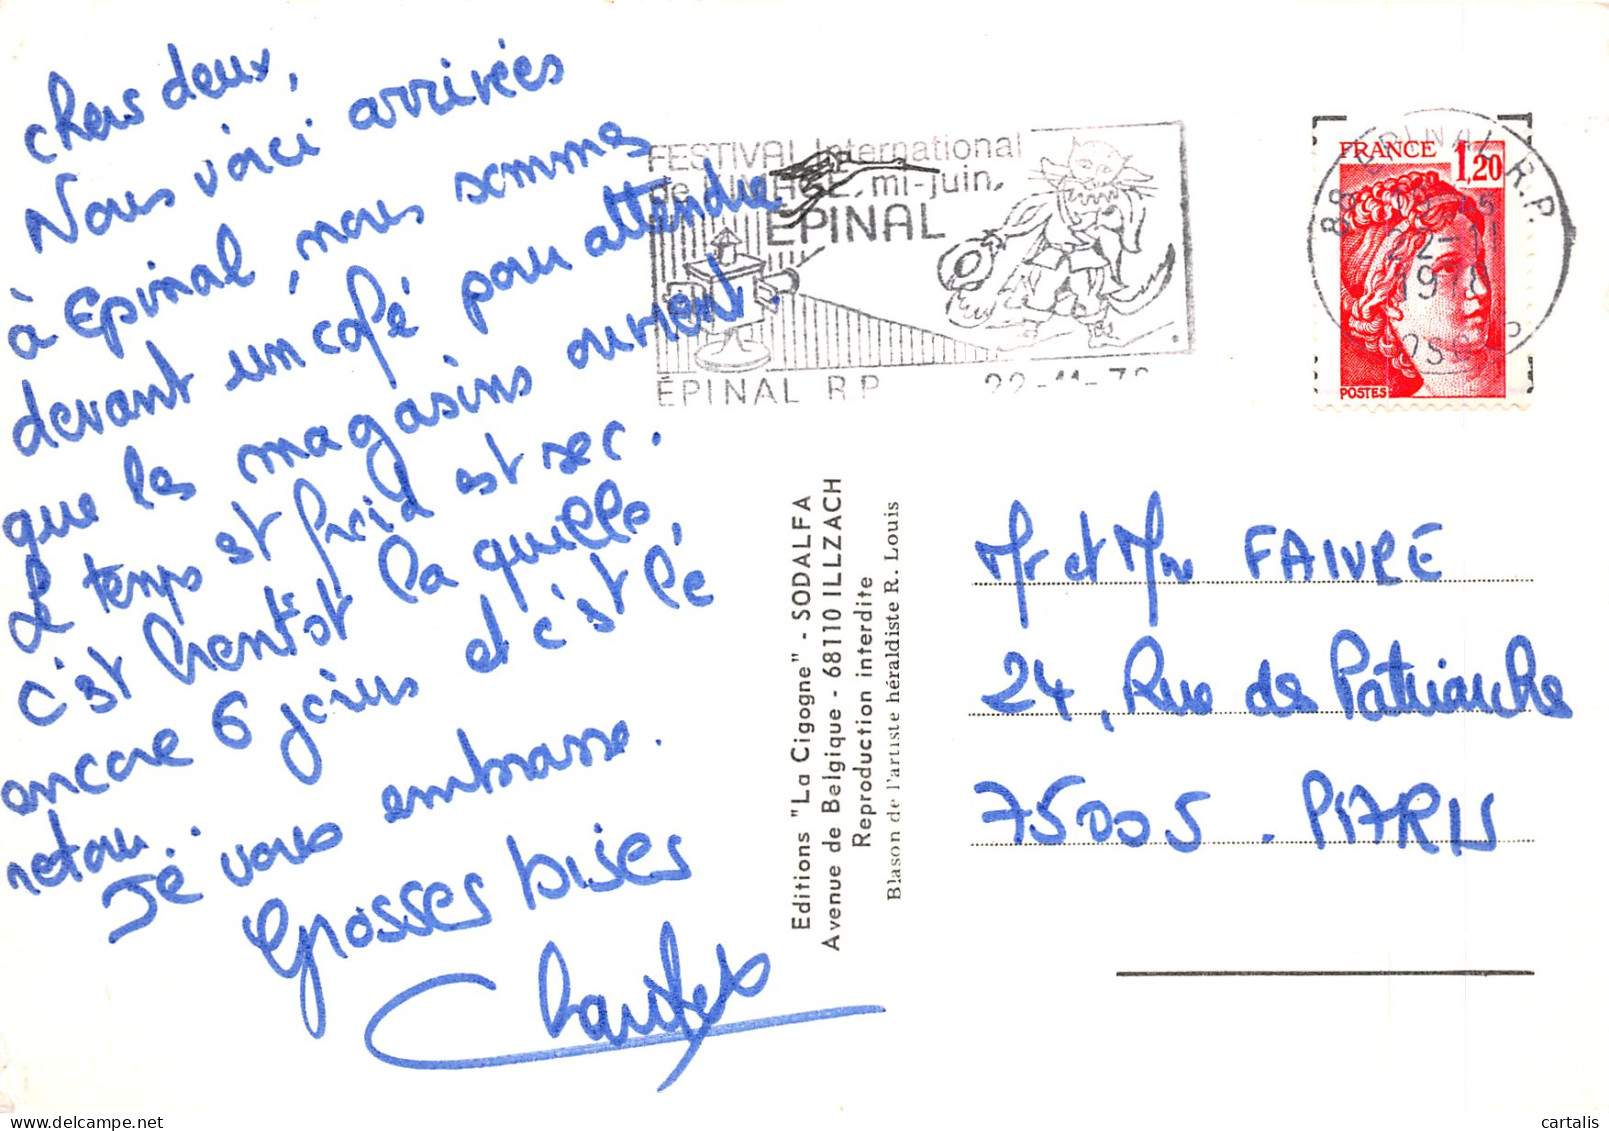 chers deux,
Nous voici arrivées
à Epinal, nous sommes
devant un café pour attendre
que les magasins ouvrent.
Le temps est froid est sec.
c'est bientôt la quille,
encore 6 jours et c'est le
retour.
Je vous embrasse.
Grosses bises
FESTIVAL International
de L'IMAGE, mi-juin,
EPINAL
ÉPINAL R.P. 22-11-78
FRANCE 1,20
POSTES
88 EPINAL R.P.
22-11
1978
VOSGES
Editions "La Cigogne" - SODALFA
Avenue de Belgique - 68110 ILLZACH
Reproduction interdite
Blason de l'artiste héraldiste R. Louis
Mr et Mme FAIVRE
24, Rue des Patriarches
75005. PARIS
cartalis
www.delcampe.net